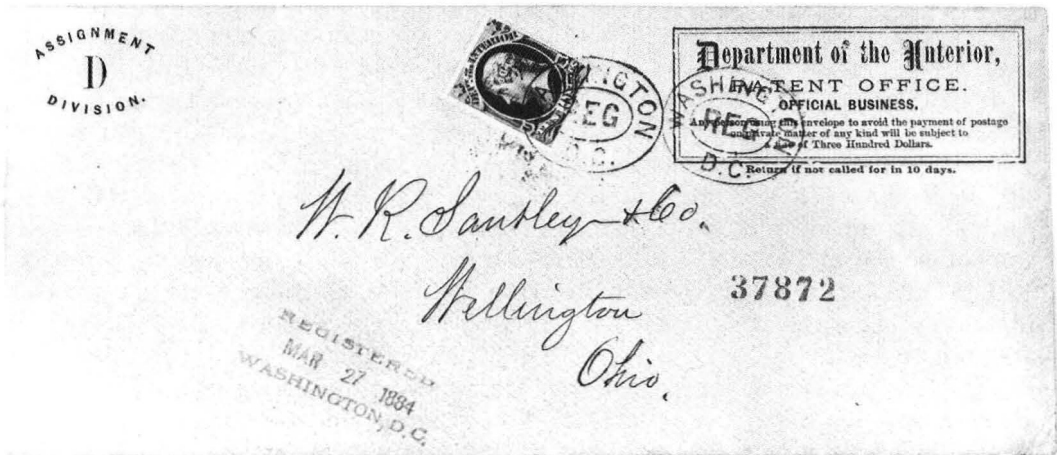 ASSIGNMENT
D
DIVISION.
WASHINGTON
REG
D.C.
WASHINGTON
REG
D.C.
Department of the Interior,
PATENT OFFICE.
OFFICIAL BUSINESS.
Any person using this envelope to avoid the payment of postage
on private matter of any kind will be subject to
a fine of Three Hundred Dollars.
Return if not called for in 10 days.
W. R. Santley & Co.
Wellington
Ohio.
37872
REGISTERED
MAR 27 1884
WASHINGTON, D.C.